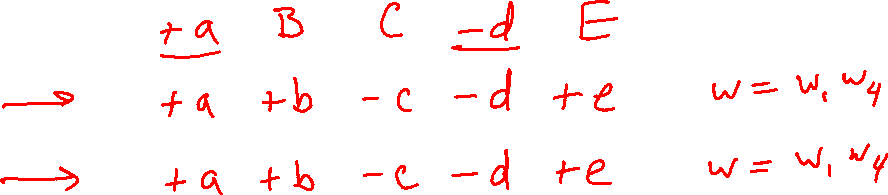 +a B C -d E
→ +a +b -c -d +e w = w₁ w₄
→ +a +b -c -d +e w = w₁ w₄